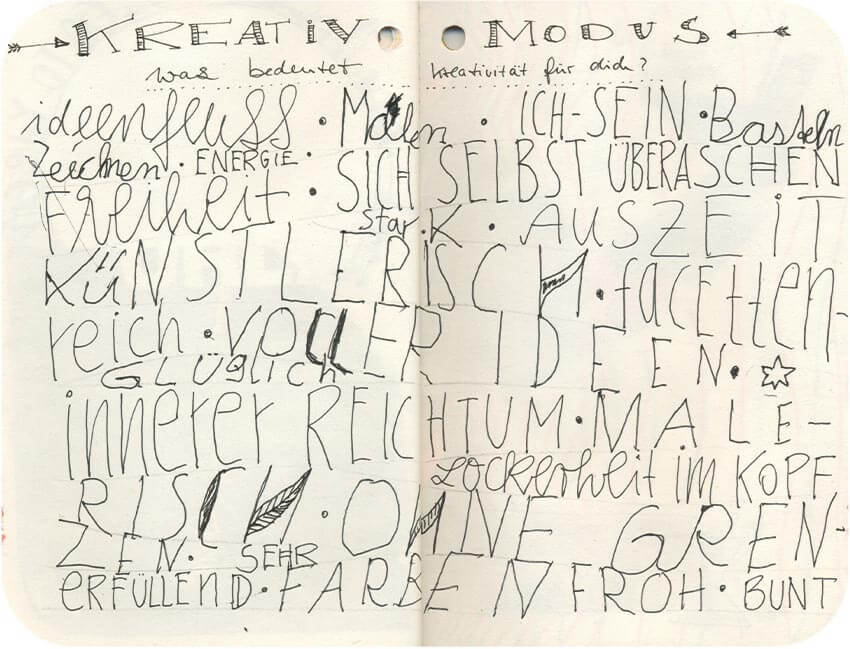 KREATiV MODUS
was bedeutet kreativität für dich?
ideenfluss · Malen · ICH-SEIN · Basteln
Zeichnen · ENERGIE · SICH SELBST ÜBERASCHEN
Freiheit · StarK · AUSZEiT
KÜNSTLERISCH · facetten-
reich · VOLLER IDEEN ·
GLÜGLich
innerer REICHTUM · MALE-
Lockerheit im KOPF
RISCH · OHNE GREN-
ZEN · SEHR
eRFÜLLEND · FARBEN FROH · BUNT